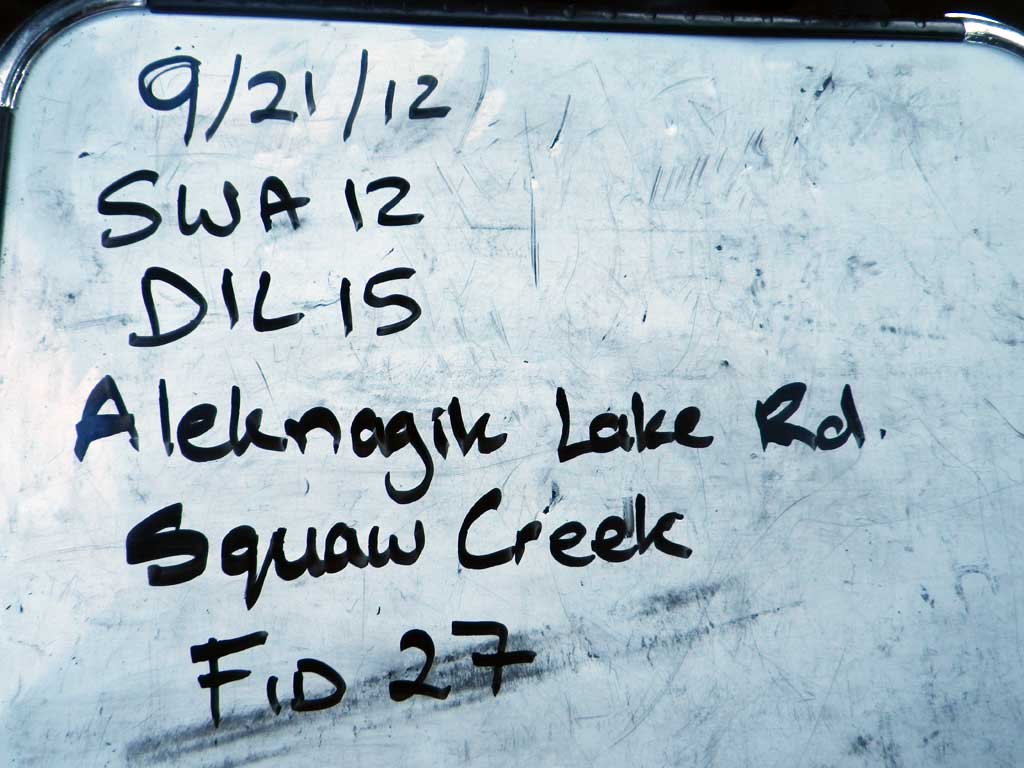 9/21/12
SWA 12
DIL 15
Aleknagik Lake Rd.
Squaw Creek
FID 27